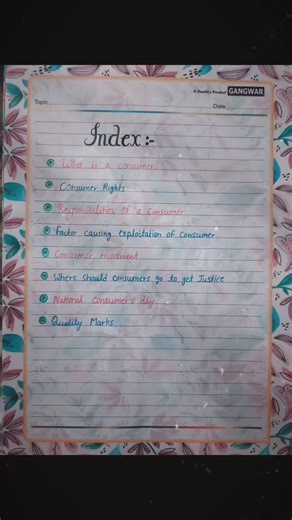 A Quality Product GANGWAR
Topic
Date
Index:-
Who is a consumer
Consumer Rights
Responsibilities of a consumer
Factor causing exploitation of consumer
Consumer movement
Where should consumers go to get Justice
National consumer's day
Quality Marks